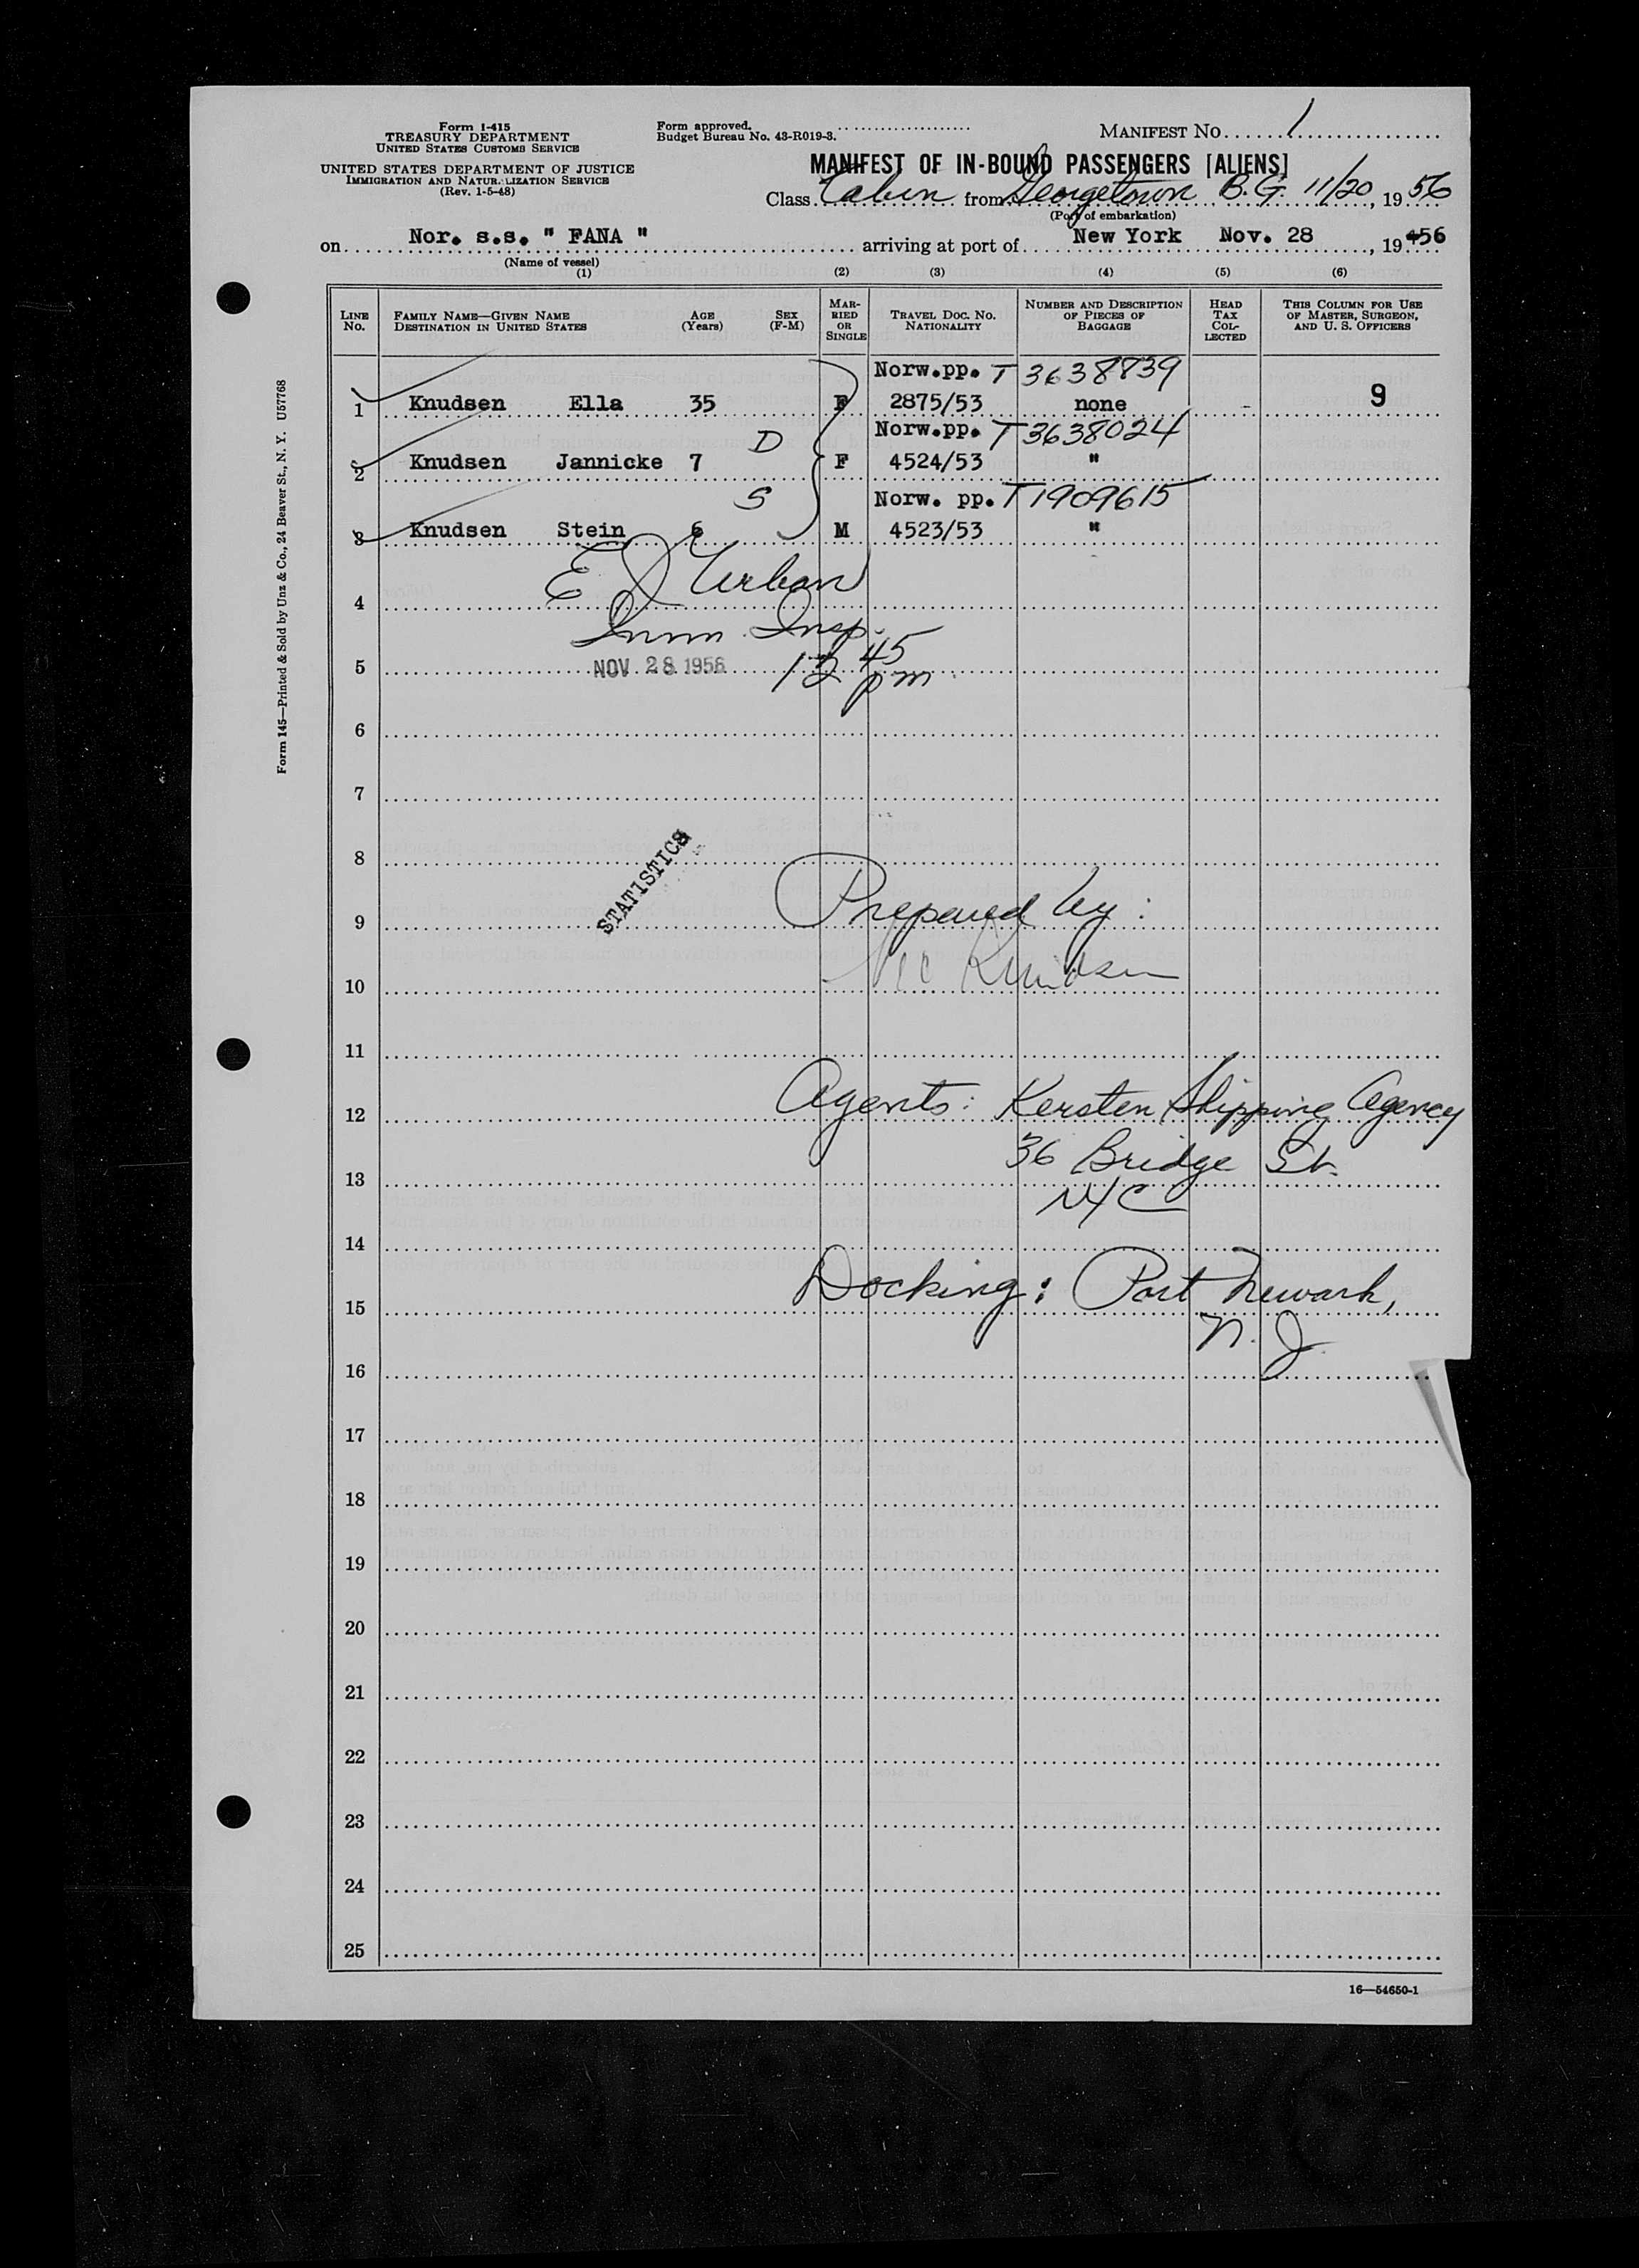 Form I-415
TREASURY DEPARTMENT
UNITED STATES CUSTOMS SERVICE
UNITED STATES DEPARTMENT OF JUSTICE
IMMIGRATION AND NATURALIZATION SERVICE
(Rev. 1-5-48)
Form approved.
Budget Bureau No. 43-R019-3.
MANIFEST NO. 1
MANIFEST OF IN-BOUND PASSENGERS [ALIENS]
Class Cabin from Georgetown B.G. 11/20, 1956
(Port of embarkation)
on Nor. s.s. " FANA " arriving at port of New York Nov. 28, 1956
(Name of vessel)
(1) (2) (3) (4) (5) (6)
LINE NO. FAMILY NAME—GIVEN NAME DESTINATION IN UNITED STATES AGE (Years) SEX (F-M) MARRIED OR SINGLE TRAVEL DOC. NO. NATIONALITY NUMBER AND DESCRIPTION OF PIECES OF BAGGAGE HEAD TAX COLLECTED THIS COLUMN FOR USE OF MASTER, SURGEON, AND U. S. OFFICERS
Norw.pp. T 3638839
1 Knudsen Ella 35 F 2875/53 none 9
D Norw.pp. T 3638024
2 Knudsen Jannicke 7 F 4524/53 "
S Norw. pp. T 1909615
3 Knudsen Stein 6 M 4523/53 "
E J Urban
4
Imm. Insp.
5 NOV 28 1956 12 45 pm
6
7
8
STATISTICS
Prepared by:
9
Knudsen
10
11
Agents: Kersten Shipping Agency
12
36 Bridge St.
13
NYC
14
Docking: Port Newark,
15
N.J.
16
17
18
19
20
21
22
23
24
25
16—54650-1
Form 145—Printed & Sold by Unz & Co., 24 Beaver St., N. Y. U57768